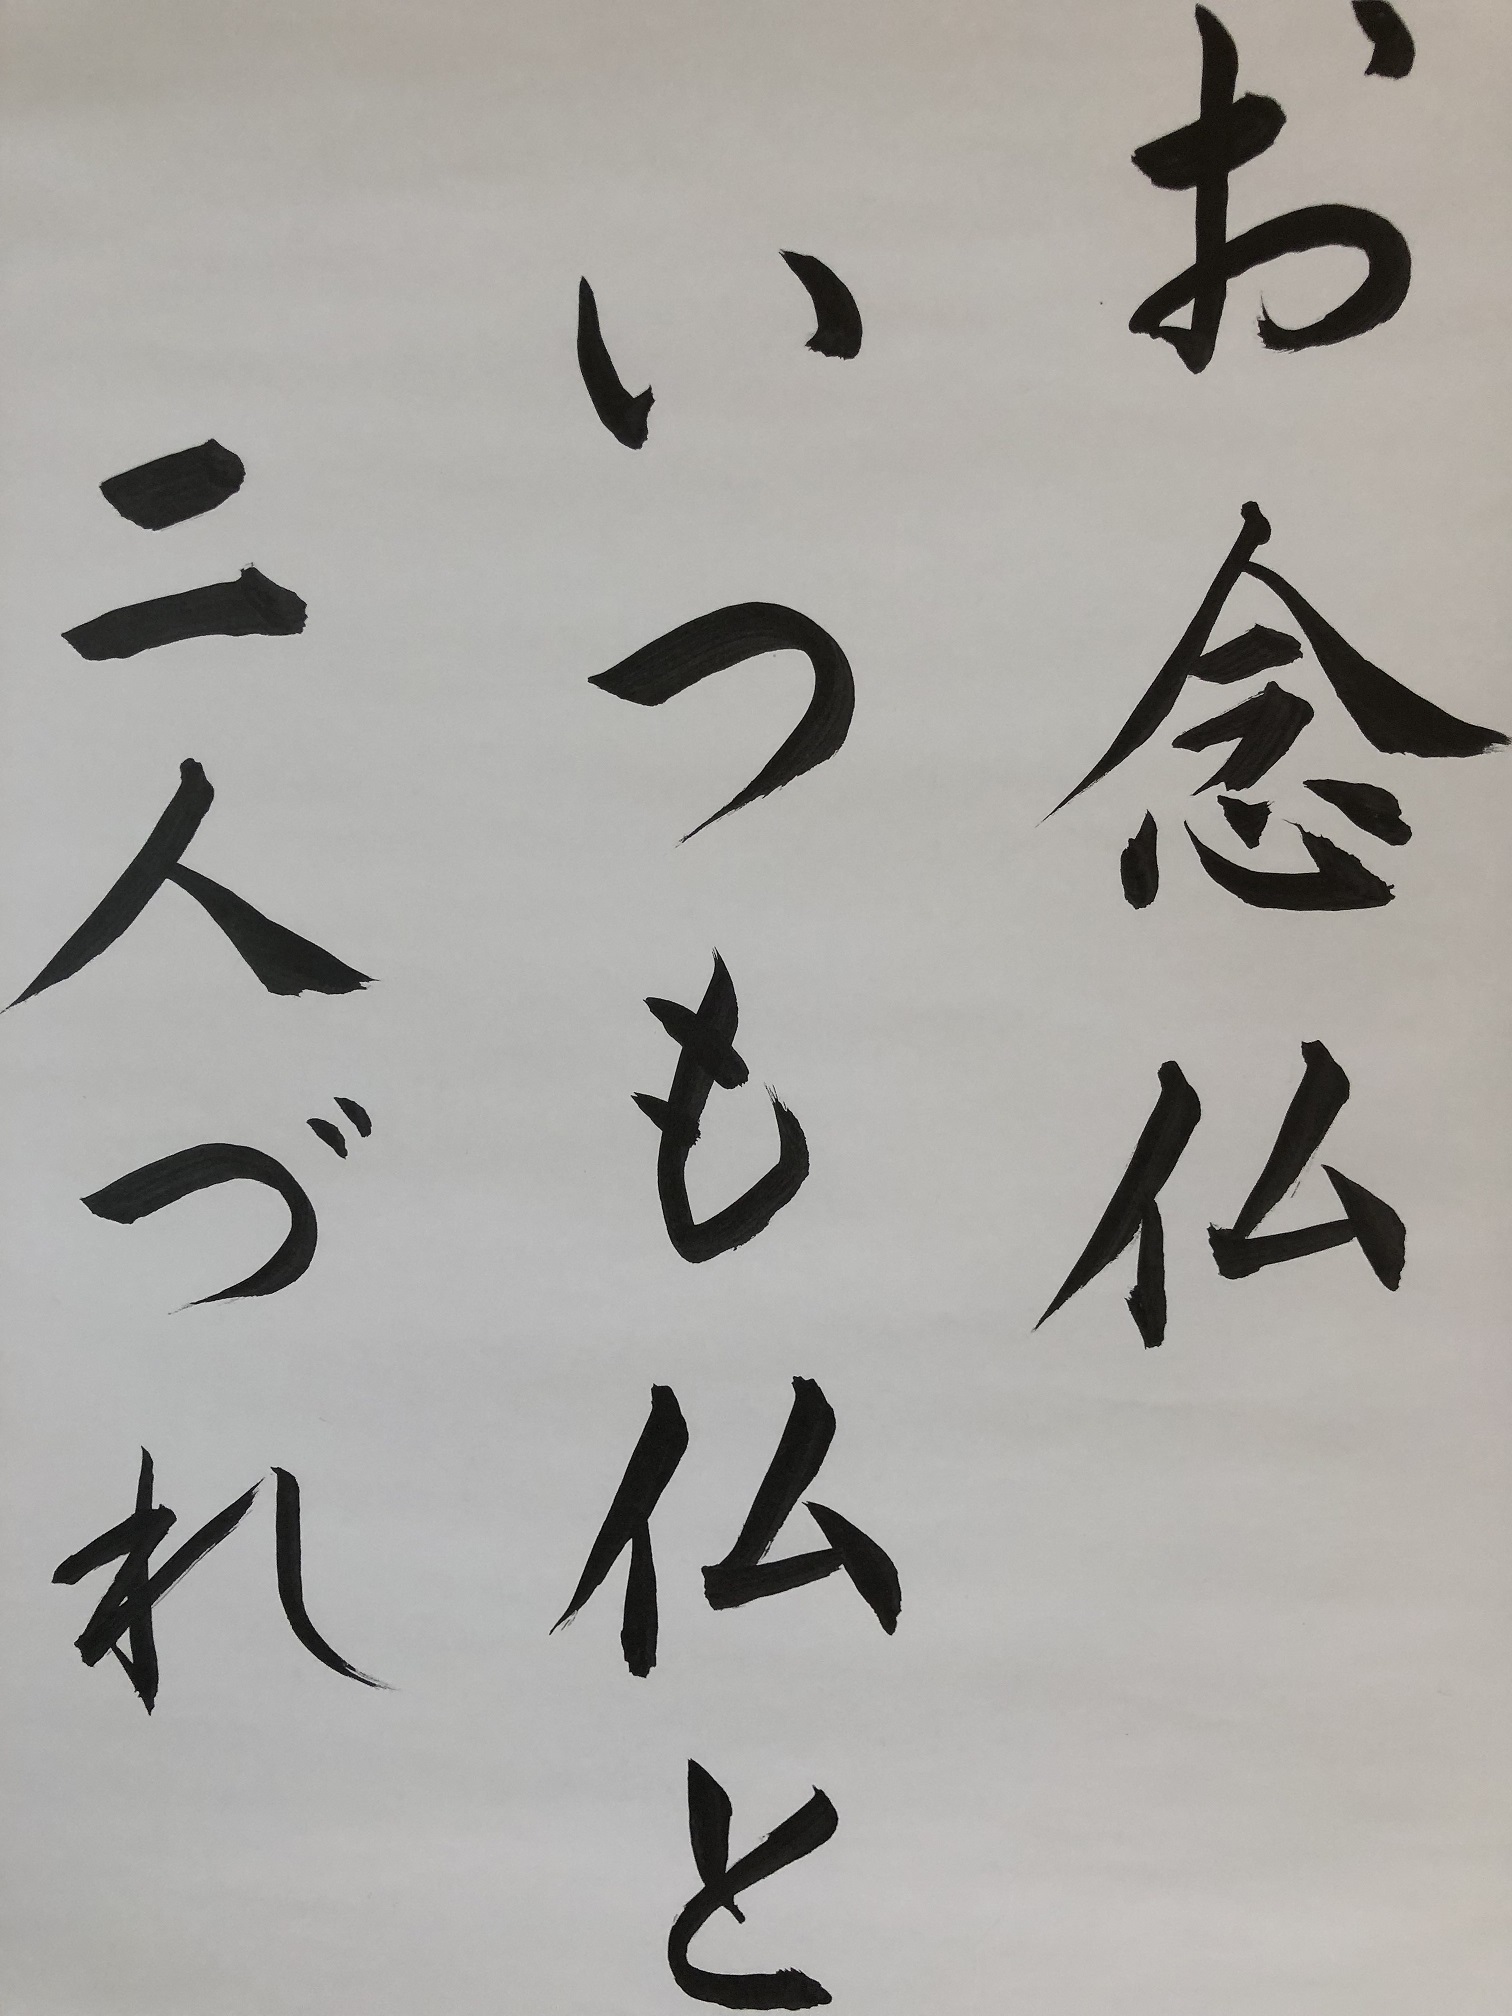 お念仏
いつも仏と
二人づれ